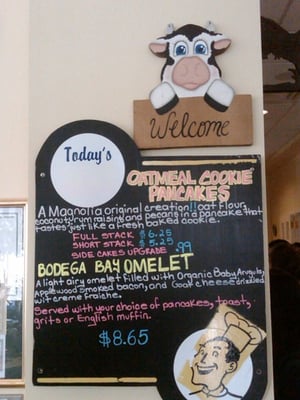 Welcome
Today's
OATMEAL COOKIE
PANCAKES
A Magnolia original creation!! oat flour,
coconut, rum raisins and pecans in a pancake that
tastes just like a fresh baked cookie.
FULL STACK $6.25
SHORT STACK $5.25
SIDE CAKES UPGRADE .99
BODEGA BAY OMELET
A light airy omelet filled with Organic Baby Arugula,
Applewood smoked bacon, and Goat cheese drizzled
wit creme fraiche.
Served with your choice of pancakes, toast,
grits or English muffin.
$8.65